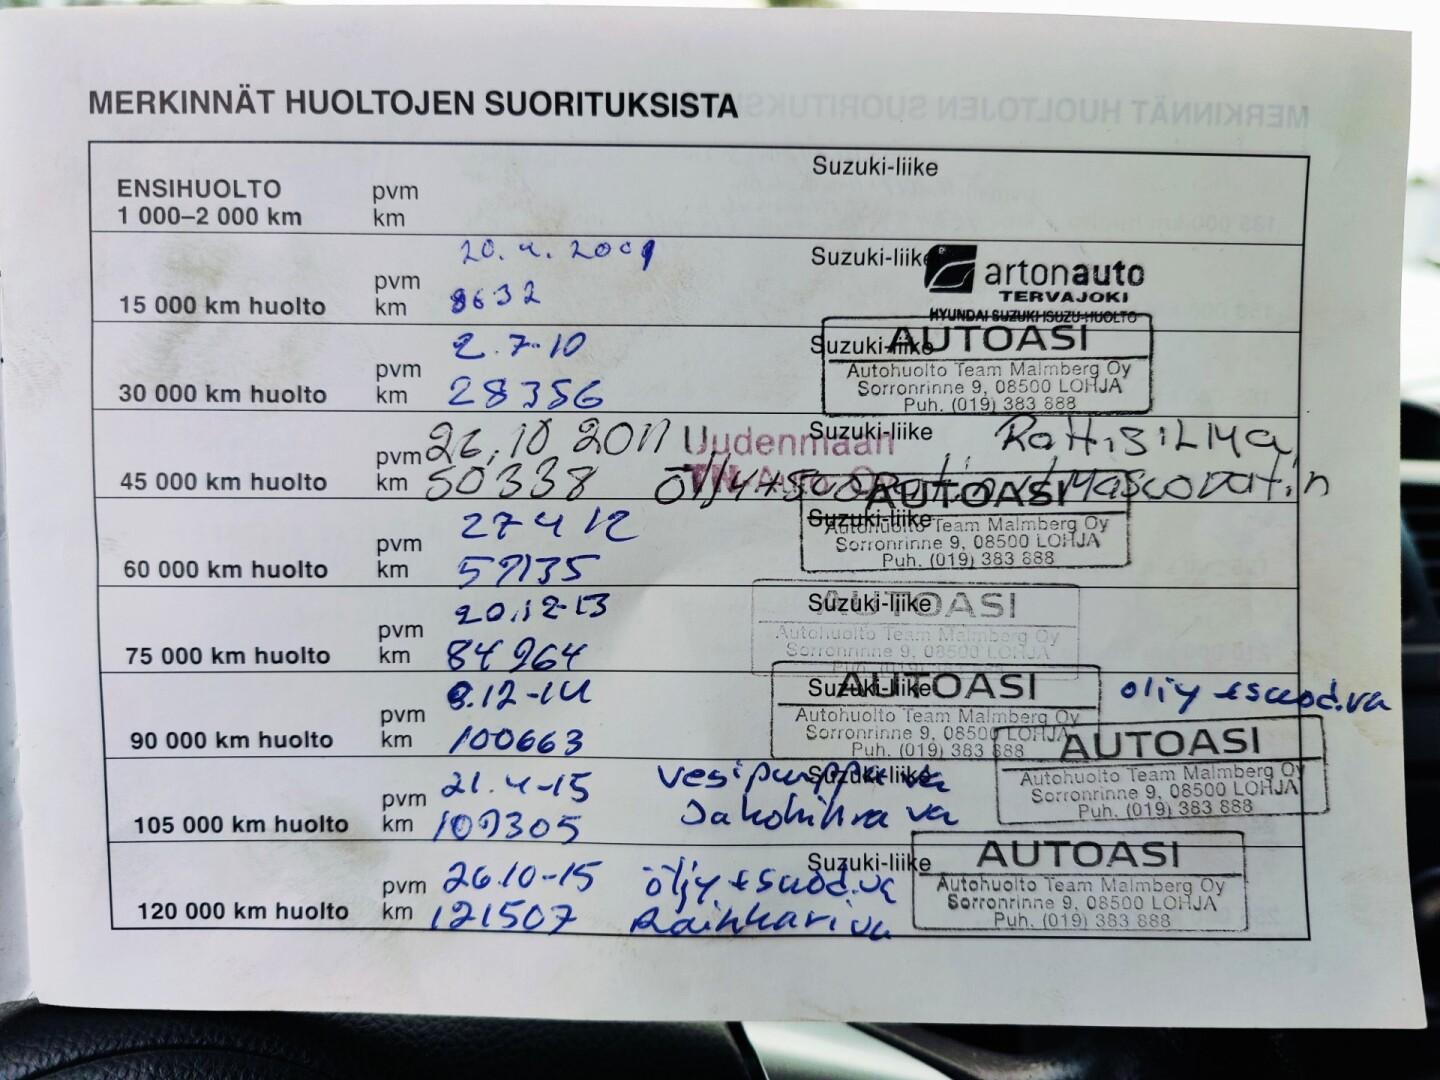 MERKINNÄT HUOLTOJEN SUORITUKSISTA
Suzuki-liike
ENSIHUOLTO pvm
1 000–2 000 km km
20.4.2009 Suzuki-liike artonauto
pvm TERVAJOKI
15 000 km huolto km 8632 HYUNDAI SUZUKI ISUZU-HUOLTO
2.7-10 Suzuki-liike AUTOASI
pvm Autohuolto Team Malmberg Oy
Sorronrinne 9, 08500 LOHJA
30 000 km huolto km 28356 Puh. (019) 383 888
pvm 26.10 2011 Uudenmaan Suzuki-liike
45 000 km huolto km 50338 TN-Auto Oy AUTOASI
27 4 12 Suzuki-liike
pvm Autohuolto Team Malmberg Oy
Sorronrinne 9, 08500 LOHJA
60 000 km huolto km 57135 Puh. (019) 383 888
20.12-13 Suzuki-liike AUTOASI
pvm Autohuolto Team Malmberg Oy
75 000 km huolto km 84964 Sorronrinne 9, 08500 LOHJA
Puh. (019) 383 888
8.12-14 Suzuki-liike AUTOASI öljy + suod.va
pvm Autohuolto Team Malmberg Oy
Sorronrinne 9, 08500 LOHJA
90 000 km huolto km 100663 Puh. (019) 383 888 AUTOASI
21.4-15 vesipumppu va Suzuki-liike Autohuolto Team Malmberg Oy
pvm Sorronrinne 9, 08500 LOHJA
105 000 km huolto km 109305 Jakohihna va Puh. (019) 383 888
Suzuki-liike AUTOASI
pvm 26.10-15 öljy + suod.va Autohuolto Team Malmberg Oy
Sorronrinne 9, 08500 LOHJA
120 000 km huolto km 121507 Puh. (019) 383 888